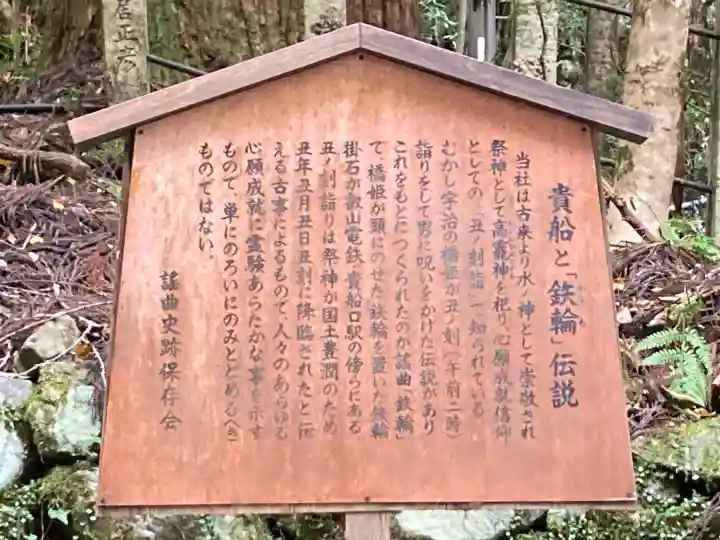 貴船と「鉄輪」伝説
当社は古来より水ノ神として崇敬され
祭神として高龗神を祀り、心願成就信仰
としての「丑ノ刻詣」で知られている。
むかし宇治の橋姫が丑ノ刻(午前二時)
詣りをして男に呪いをかけた伝説があり
これをもとにつくられたのが謡曲「鉄輪」
で、橋姫が頭にのせた鉄輪を置いた鉄輪
掛石が叡山電鉄・貴船口駅の傍らにある
丑ノ刻詣りは祭神が国土豊潤のため
丑年丑月丑日丑刻に降臨されたと伝
える古事によるもので、人々のあらゆる
心願成就に霊験あらたかな事を示す
もので、単にのろいにのみとどめるべき
ものではない。
謡曲史跡保存会
居正彦